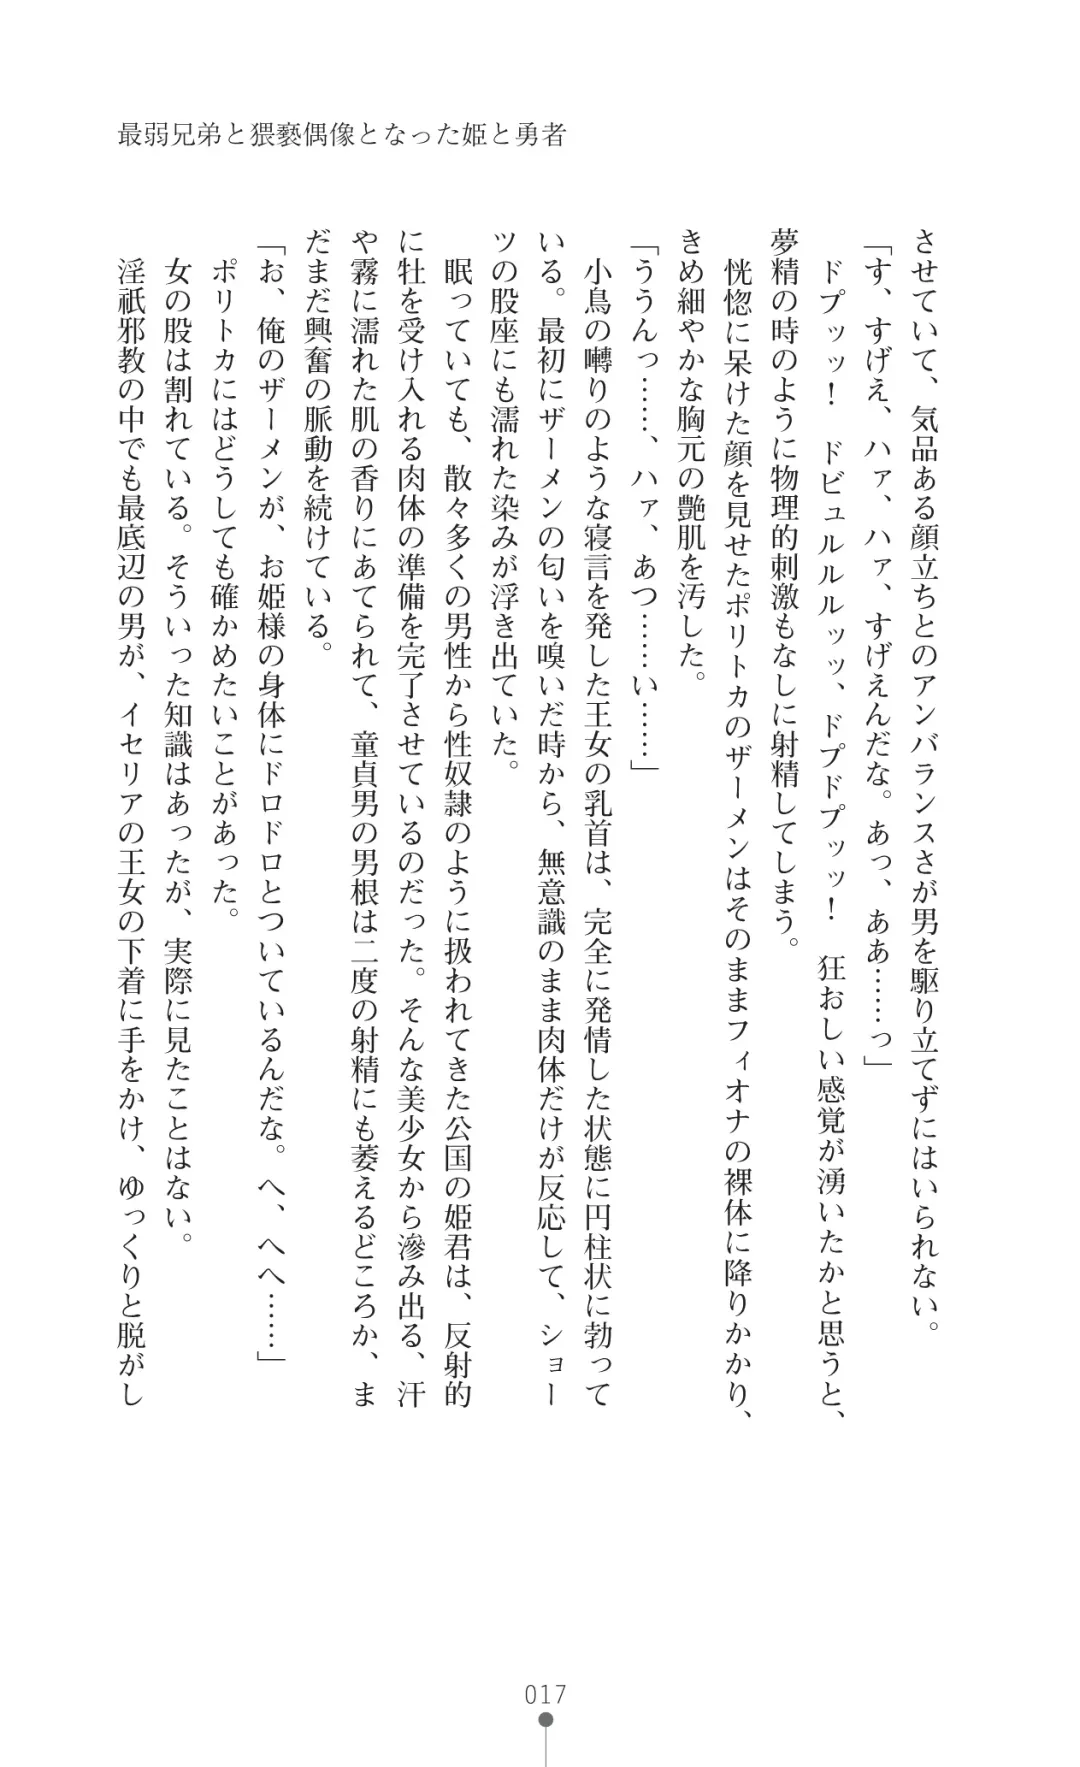 最弱兄弟と猥褻偶像となった姫と勇者
させていて、気品ある顔立ちとのアンバランスさが男を駆り立てずにはいられない。
「す、すげえ、ハァ、ハァ、すげえんだな。あっ、ああ……っ」
ドプッッ！　ドビュルルルッッ、ドプドプッッ！　狂おしい感覚が湧いたかと思うと、
夢精の時のように物理的刺激もなしに射精してしまう。
恍惚に呆けた顔を見せたポリトカのザーメンはそのままフィオナの裸体に降りかかり、
きめ細やかな胸元の艶肌を汚した。
「ううんっ……、ハァ、あつ……い……」
小鳥の囀りのような寝言を発した王女の乳首は、完全に発情した状態に円柱状に勃って
いる。最初にザーメンの匂いを嗅いだ時から、無意識のまま肉体だけが反応して、ショー
ツの股座にも濡れた染みが浮き出ていた。
眠っていても、散々多くの男性から性奴隷のように扱われてきた公国の姫君は、反射的
に牡を受け入れる肉体の準備を完了させているのだった。そんな美少女から滲み出る、汗
や霧に濡れた肌の香りにあてられて、童貞男の男根は二度の射精にも萎えるどころか、ま
だまだ興奮の脈動を続けている。
「お、俺のザーメンが、お姫様の身体にドロドロとついているんだな。へ、へへ……」
ポリトカにはどうしても確かめたいことがあった。
女の股は割れている。そういった知識はあったが、実際に見たことはない。
淫祇邪教の中でも最底辺の男が、イセリアの王女の下着に手をかけ、ゆっくりと脱がし
017